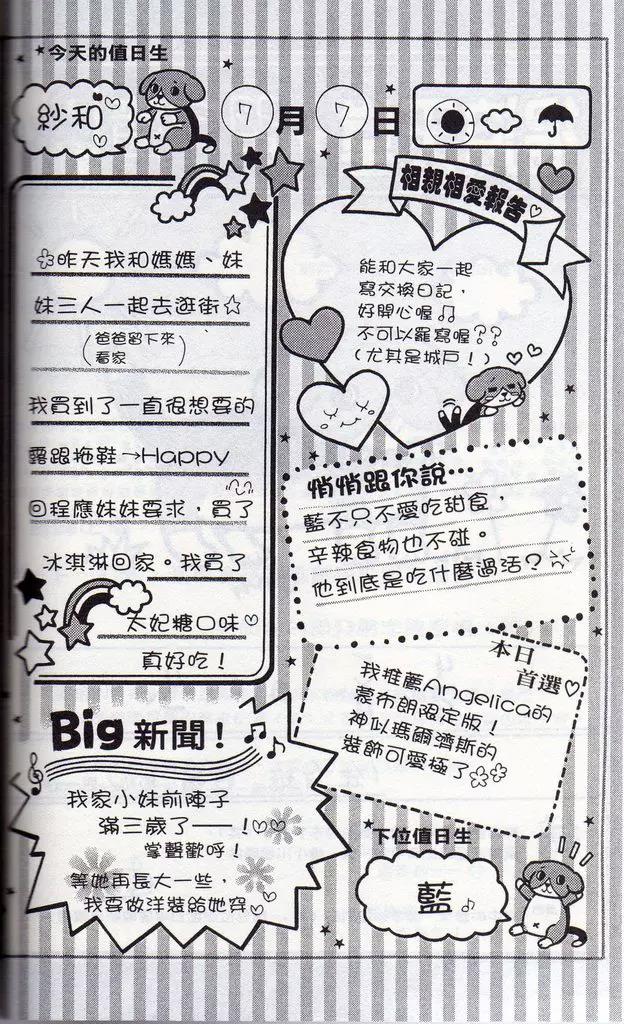 ★今天的值日生
紗和
7月7日
昨天我和媽媽、妹
妹三人一起去逛街☆
(爸爸留下來
看家)
我買到了一直很想要的
露跟拖鞋→Happy
回程應妹妹要求，買了
冰淇淋回家。我買了
太妃糖口味♡
真好吃！
相親相愛報告♡
能和大家一起
寫交換日記，
好開心喔♫
不可以罷寫喔??
(尤其是城戶！)
悄悄跟你說…
藍不只不愛吃甜食，
辛辣食物也不碰。
他到底是吃什麼過活？
本日
首選♡
我推薦Angelica的
蒙布朗限定版！
神似瑪爾濟斯的
裝飾可愛極了
Big 新聞！
我家小妹前陣子
滿三歲了——！♡♡
掌聲歡呼！
等她再長大一些，
我要做洋裝給她穿♡
下位值日生
藍♪